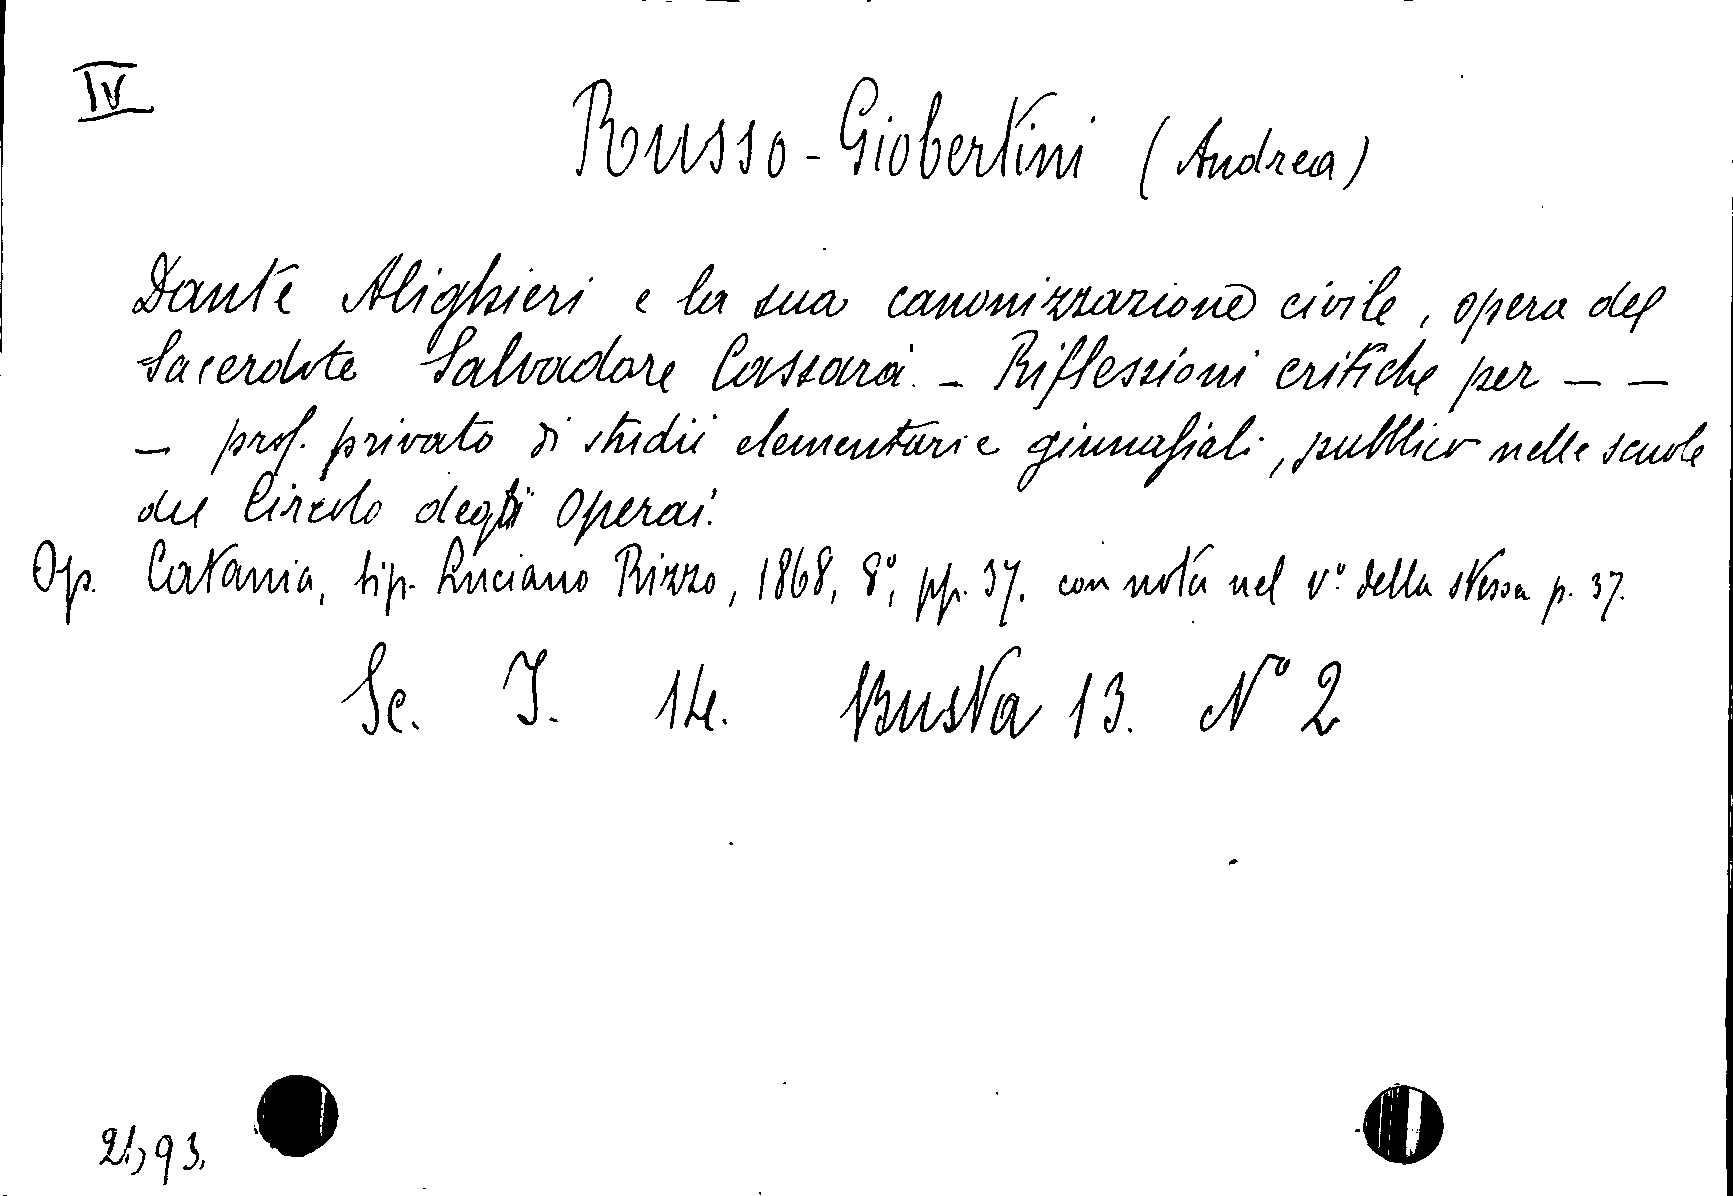 IV
Russo-Giobertini (Andrea)
Dante Alighieri e la sua canonizzazione civile, opera del
Sacerdote Salvadore Cassarà. - Riflessioni critiche per — —
— prof. privato di studii elementari e ginnasiali, pubblico nelle scuole
del Circolo degli Operai.
Op. Catania, tip. Luciano Rizzo, 1868, 8°, pp. 37. con nota nel v.° della stessa p. 37.
Sc. I. 14. Busta 13. N° 2